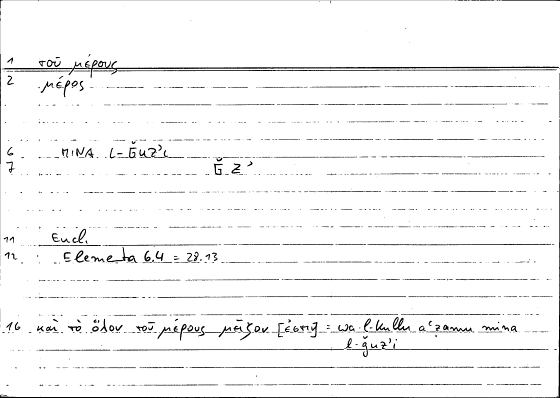 1 τοῦ μέρους
2 μέρος
6 MINA l-ǦUZʾI
7 Ǧ Z ʾ
11 Eucl.
12 Elementa 6.4 = 28.13
16 καὶ τὸ ὅλον τοῦ μέρους μεῖζον [ἐστιν] = wa-l-kullu aʿẓamu mina
l-ǧuzʾi